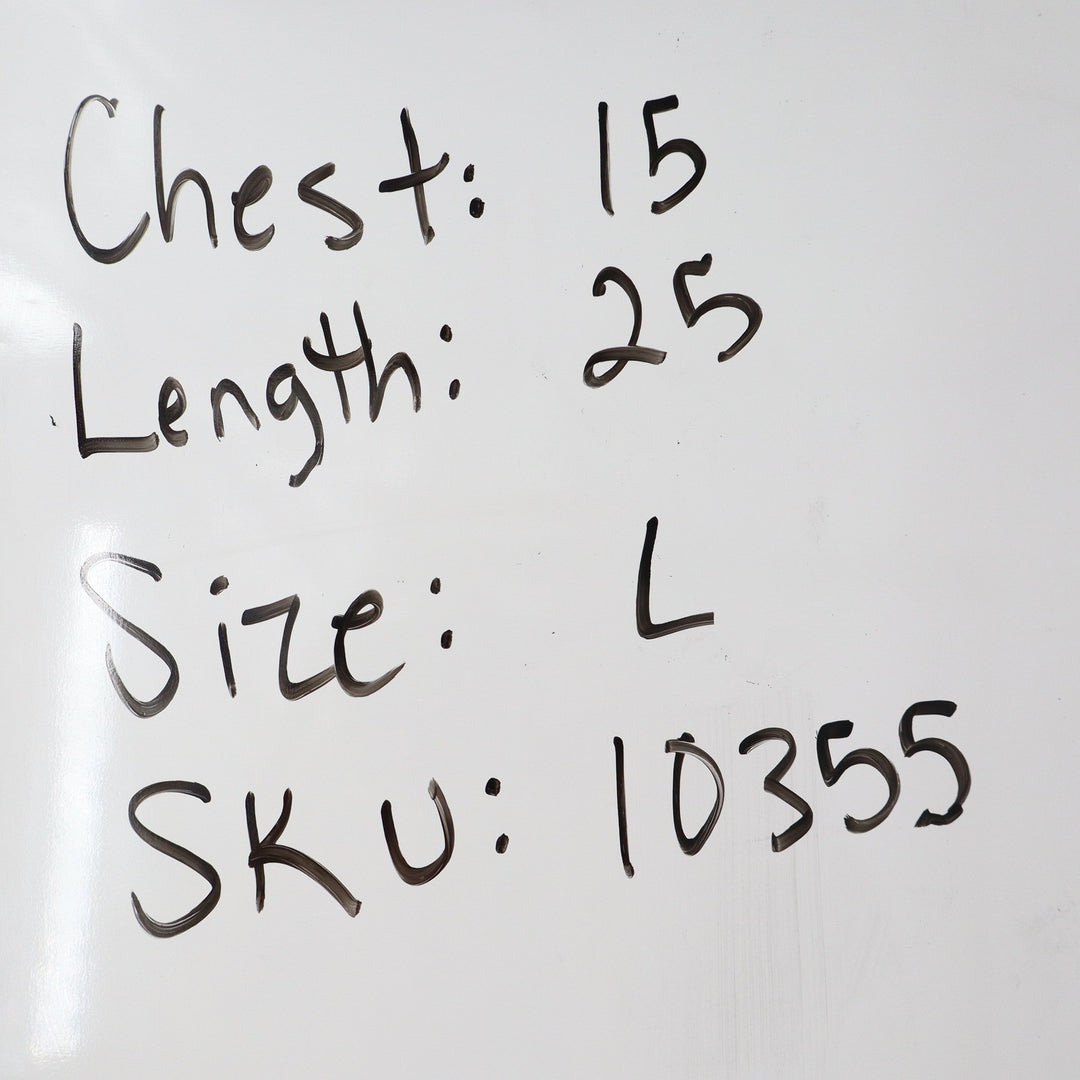 Chest: 15
Length: 25
Size: L
SKU: 10355